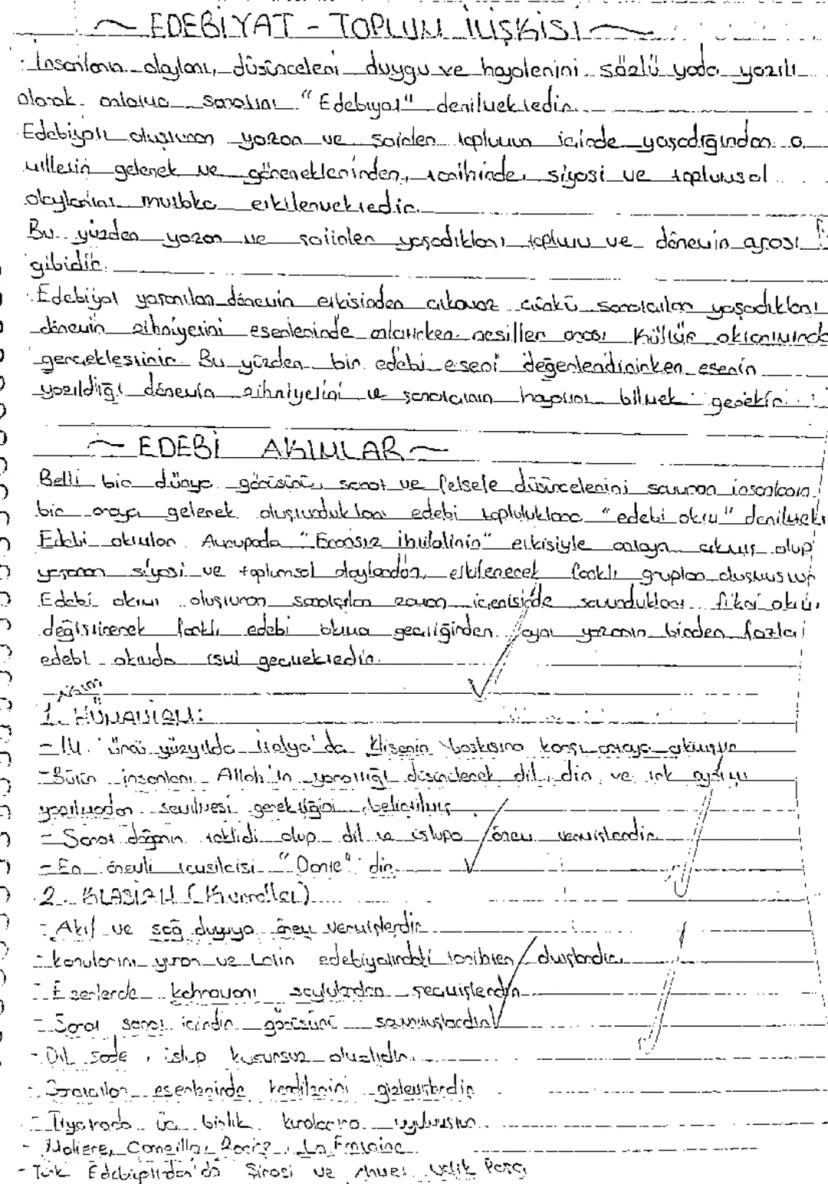 ~ EDEBİYAT - TOPLUM İLİŞKİSİ ~
İnsanların olayları, düşünceleri duygu ve hayalerini sözlü yada yazılı
olarak anlatma sanatını "Edebiyat" denilmektedir.
Edebiyatı oluşturan yazar ve şairler toplumun içinde yaşadığından o
milletin gelenek ve göreneklerinden, tarihinde, siyasi ve toplumsal
olaylarını mutlaka etkilenmektedir.
Bu yüzden yazar ve şairler yaşadıkları toplum ve dönemin aynası
gibidir.
Edebiyat yaratılan dönemin etkisinden çıkamaz çünkü sanatçılar yaşadıkları
dönemin zihniyetini eserlerinde anlatırken nesiller arası kültür aktarımında
gerçekleştirir. Bu yüzden bir edebi eseri değerlendirirken eserin
yazıldığı dönemin zihniyetini ve sanatçının hayatını bilmek gerekir.
~ EDEBİ AKIMLAR ~
Belli bir dünya görüşünü, sanat ve felsefe düşüncelerini savunan insanların
bir araya gelerek oluşturdukları edebi topluluklara "edebi akım" denilmekt
Edebi akımlar Avrupada "Fransız ihtilalinin" etkisiyle ortaya çıkmış olup
yaşanan siyasi ve toplumsal olaylardan, etkilenecek farklı gruplar oluşmuştur
Edebi akımı oluşturan sanatçılar zaman içerisinde savundukları fikri akım
değiştirerek farklı edebi akıma geçtiğinden aynı yazarın birden fazla
edebi akımda ismi geçmektedir.
1. HÜMANİZM:
- 14. yüzyılda İtalya'da Klisenin baskısına karşı ortaya çıkmıştır
- Bütün insanları Allah'ın yarattığı düşünülerek dil, din ve ırk ayrımı
yapılmadan sevilmesi gerektiğini belirtilmiş
- Sanat doğanın taklidi olup dil ve üslupa önem vermişlerdir
- En önemli temsilcisi "Dante" dir.
2. KLASİZM (Kuralcı)
- Akıl ve sağ duyuya önem vermişlerdir
- konularını yunan ve Latin edebiyatındaki tarihten
- Eserlerde kahramanı soylulardan seçmişlerdir
- Sanat sanat içindir görüşünü savunmuşlardır
- Dil sade, üslup kusursuz olmalıdır.
- Sanatçılar eserlerinde kendilerini gizlemişlerdir
- Tiyatroda üç birlik kuralına uyulmuştur.
- Moliere, Corneille, Racine, La Fontaine
- Türk Edebiyatından'da Şinasi ve Ahmet Vefik Paşa